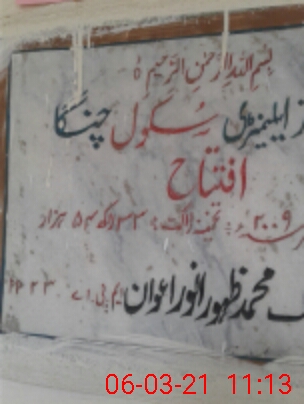 بسم اللہ الرحمن الرحیم ہ
ایلیمنٹری سکول چنگا
افتتاح
۲۰۰۹ء تخمینہ لاگت: ۳۳ لاکھ ۵۳ ہزار
محمد ظہور انور اعوان ایم پی اے ۲۳
06-03-21 11:13